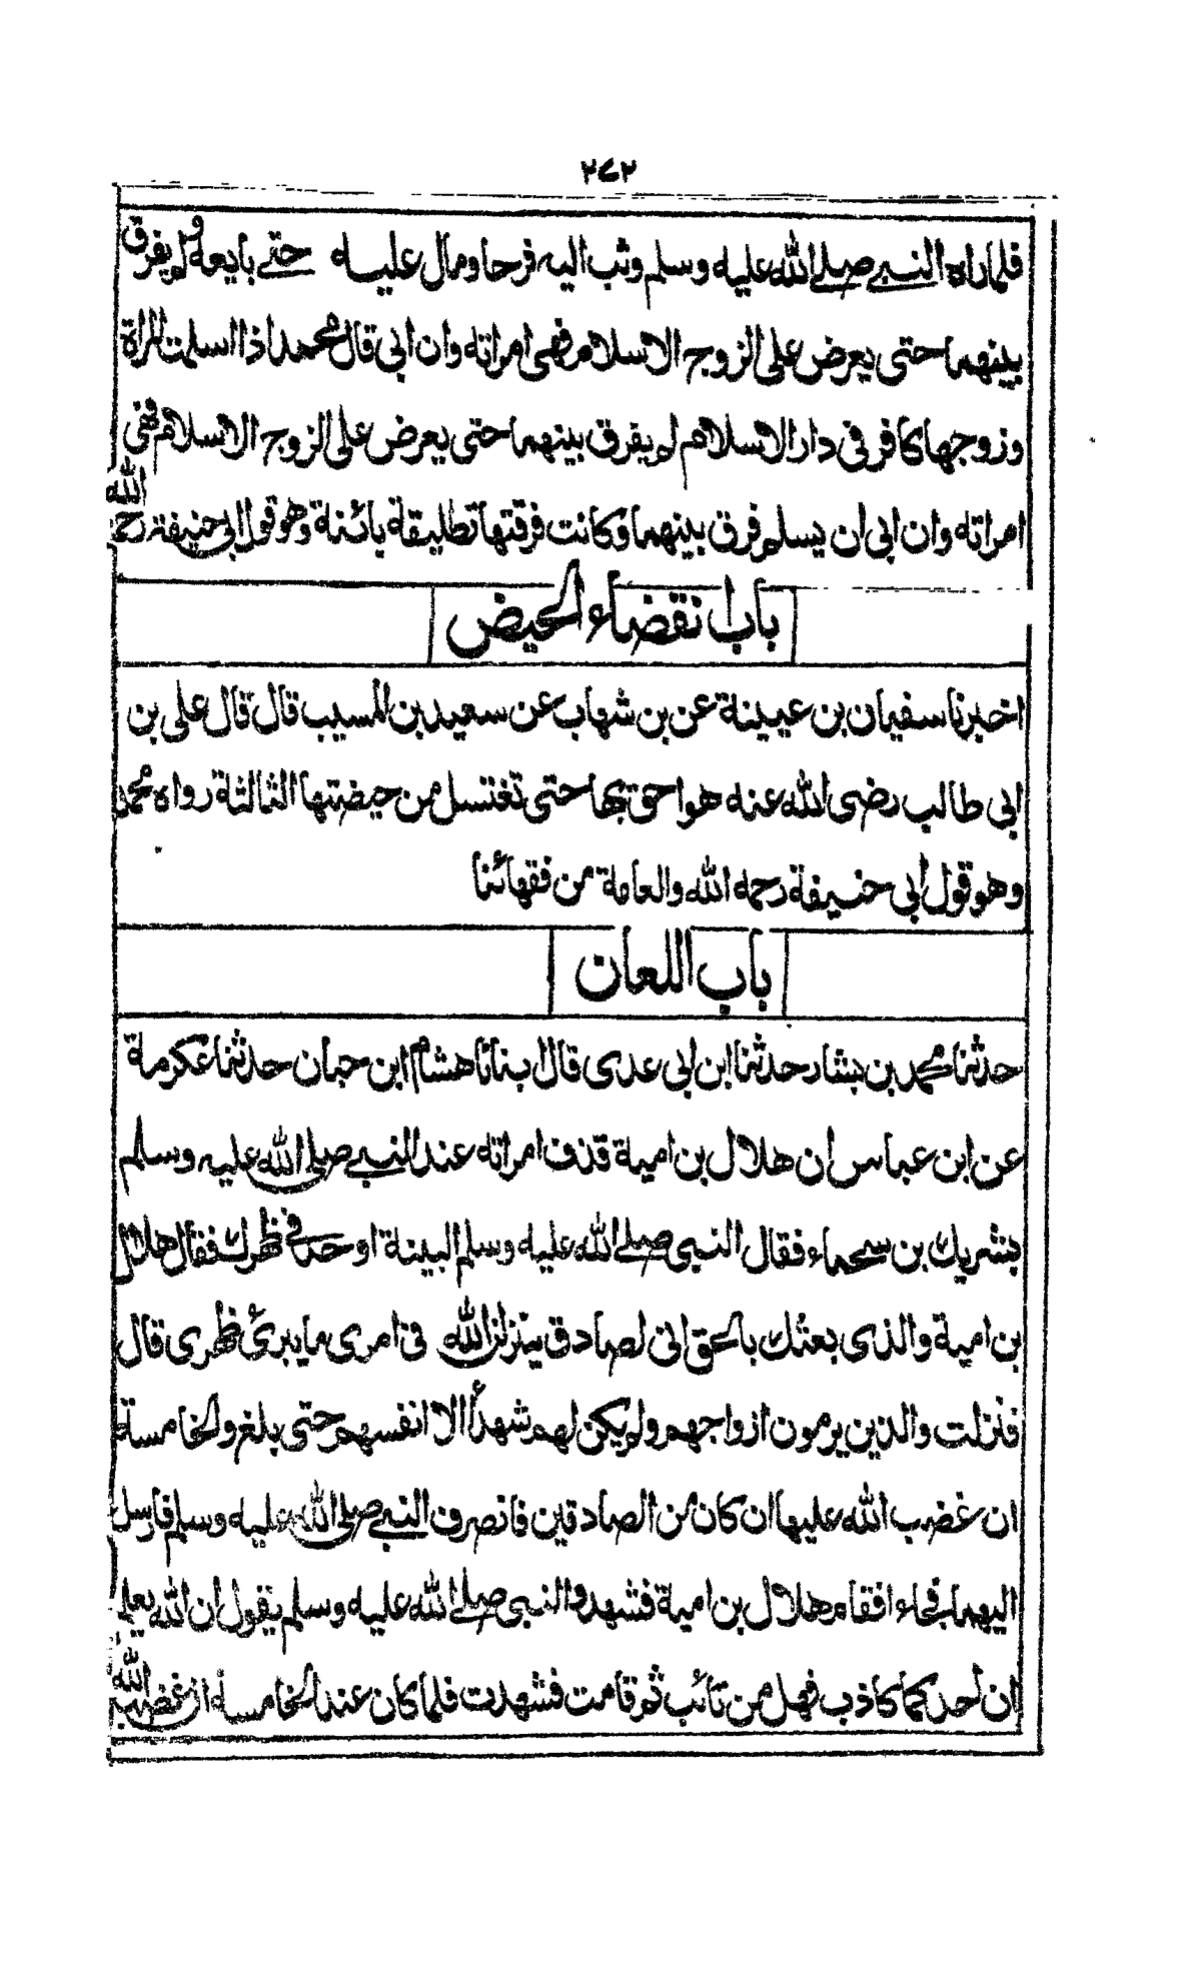 ٢٧٢
فلما راه النبي صلى الله عليه وسلم وثب اليه فرحا ومال عليه حتے بايعه ولم يفرق
بينهما حتى يعرض على الزوج الاسلام فهى امراته وان ابى قال محمد اذا اسلمت المراة
وزوجها كافر فى دار الاسلام لم يفرق بينهما حتى يعرض على الزوج الاسلام فهى
امراته وان ابى ان يسلم فرق بينهما وكانت فرقتها تطليقة بائنة وهو قول ابى حنيفة رحمه الله
باب انقضاء الحيض
اخبرنا سفيان بن عيينة عن بن شهاب عن سعيد بن المسيب قال قال على بن
ابى طالب رضى الله عنه هو احق بها حتى تغتسل من حيضتها الثالثة رواه محمد
وهو قول ابى حنيفة رحمه الله والعامة من فقهائنا
باب اللعان
حدثنا محمد بن بشار حدثنا ابن ابى عدى قال ابنانا هشام ابن حبان حدثنا عكرمة
عن ابن عباس ان هلال بن امية قذف امراته عند النبي صلى الله عليه وسلم
بشريك بن سحماء فقال النبى صلى الله عليه وسلم البينة او حد فى ظهرك فقال هلال
بن امية والذى بعثك بالحق انى لصادق ينزلن الله فى امرى مايبرئ ظهرى قال
فنزلت والذين يرمون ازواجهم ولم يكن لهم شهدأ الا انفسهم حتى بلغ والخامسة
ان غضب الله عليها ان كان من الصادقين فانصرف النبي صلى الله عليه وسلم فارسل
اليهما فجاء افقام هلال بن امية فشهد والنبى صلى الله عليه وسلم يقول ان الله يعلم
ان احدكما كاذب فهل من تائب ثم قامت فشهدت فلما كان عند الخامسة ان غضب الله